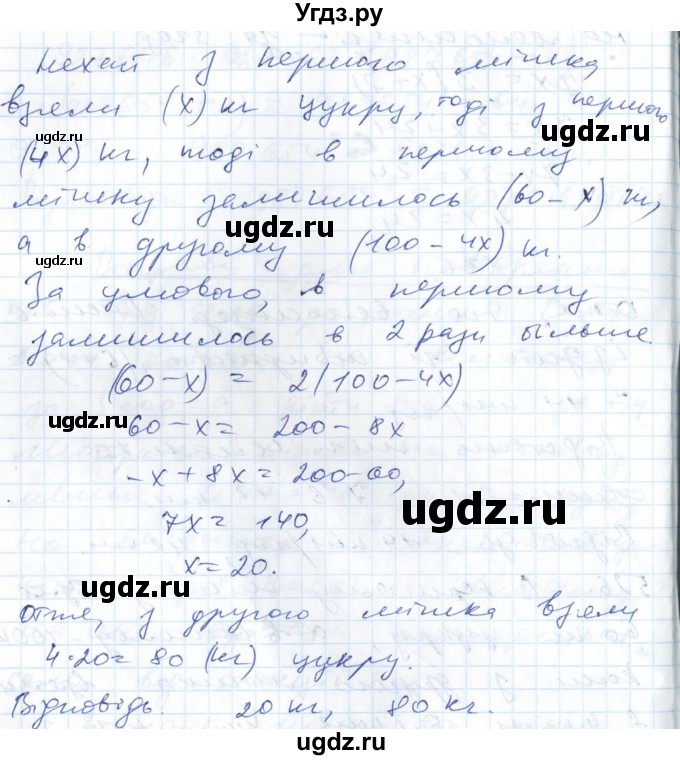 Угдз.ру
Нехай з першого мішка
взяли (x) кг цукру, тоді з першого
(4x) кг, тоді в першому
мішку залишилось (60 - x) кг,
а в другому (100 - 4x) кг.
За умовою, в першому
залишилось в 2 рази більше.
(60 - x) = 2(100 - 4x)
60 - x = 200 - 8x
-x + 8x = 200 - 60,
7x = 140,
x = 20.
Отже, з другого мішка взяли
4·20 = 80 (кг) цукру.
Відповідь. 20 кг, 80 кг.
ugdz.ru
ugdz.ru
ugdz.ru
ugdz.ru
ugdz.ru
ugdz.ru
ugdz.ru
ugdz.ru
ugdz.ru
ugdz.ru
ugdz.ru
ugdz.ru